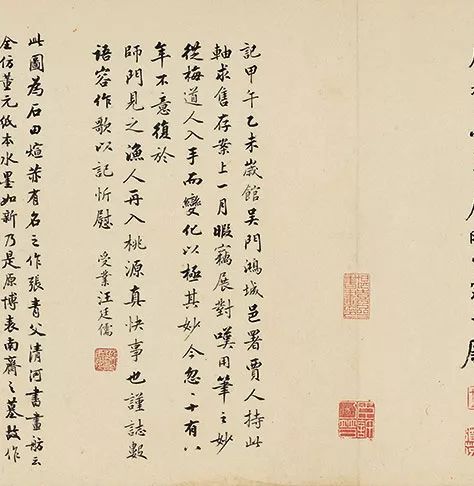 記甲午乙未歲館吳門鴻城邑署賈人持此
軸求售存案上一月暇竊展對嘆用筆之妙
從梅道人入手而變化以極其妙今忽〻十有八
年不意復於
師門見之漁人再入桃源真快事也謹誌數
語容作歌以記忻慰 受業汪廷儒
此圖為石田煊赫有名之作張青父清河書畫舫云
全仿董元紙本水墨如新乃是原博表南齋之墓故作